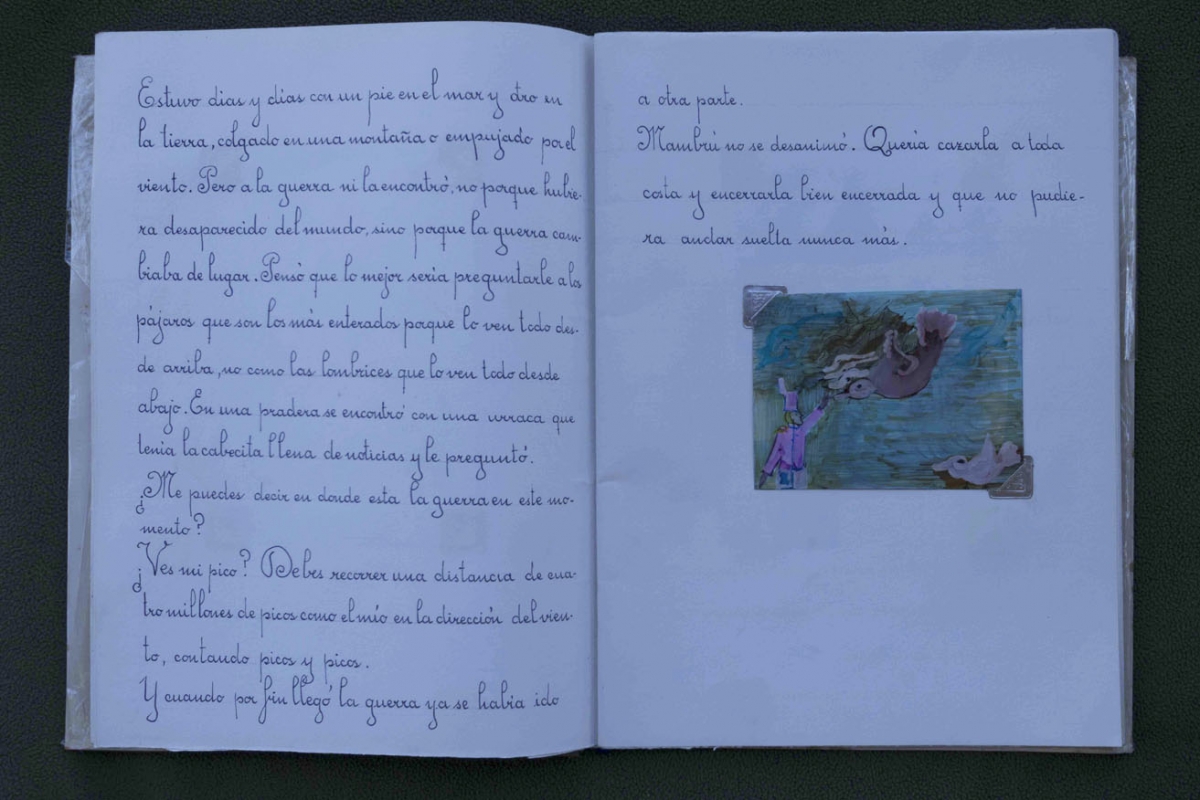 Estuvo dias y dias con un pie en el mar y otro en
la tierra, colgado en una montaña o empujado por el
viento. Pero a la guerra ni la encontró, no porque hubie-
ra desaparecido del mundo, sino porque la guerra cam-
biaba de lugar. Pensó que lo mejor seria preguntarle a los
pájaros que son los más enterados porque lo ven todo des-
de arriba, no como las lombrices que lo ven todo desde
abajo. En una pradera se encontró con una urraca que
tenia la cabecita llena de noticias y le preguntó.
¿Me puedes decir en donde esta la guerra en este mo-
mento?
¿Ves mi pico? Debes recorrer una distancia de cua-
tro millones de picos como el mío en la dirección del vien-
to, contando picos y picos.
Y cuando por fin llegó la guerra ya se habia ido
a otra parte.
Mambrú no se desanimó. Queria cazarla a toda
costa y encerrarla bien encerrada y que no pudie-
ra andar suelta nunca más.